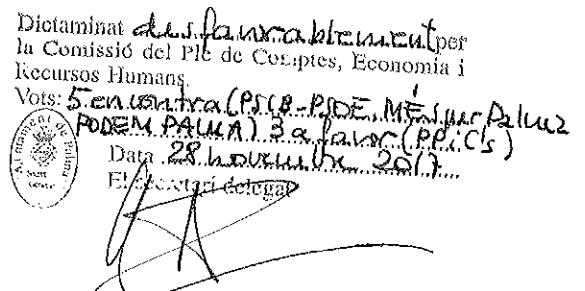 Dictaminat desfavorablement per
la Comissió del Ple de Comptes, Economia i
Recursos Humans
Vots: 5 en contra (PSIB-PSOE, MÉS per Palma
PODEM PALMA) 3 a favor (PP i C's)
Data 28 novembre 2017
El secretari delegat
Ajuntament de Palma